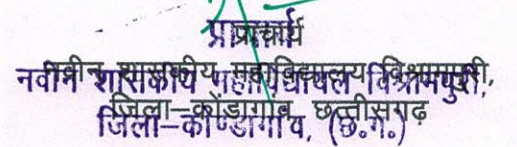 प्राचार्य
नवीन शासकीय महाविद्यालय विश्रामपुरी,
जिला–कोंडागांव, छत्तीसगढ़
प्राचार्य
नवीन शासकीय महाविद्यालय विश्रामपुरी,
जिला–कोण्डागांव, (छ.ग.)